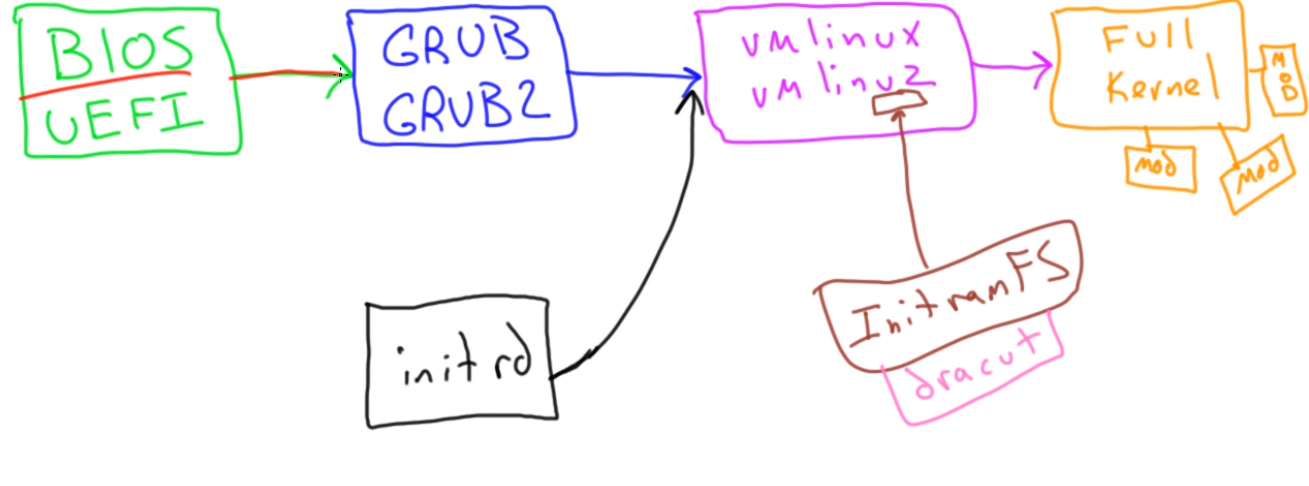 BIOS
UEFI
GRUB
GRUB2
vmlinux
vmlinuz
Full
Kernel
MOD
Mod
Mod
initrd
InitramFS
dracut